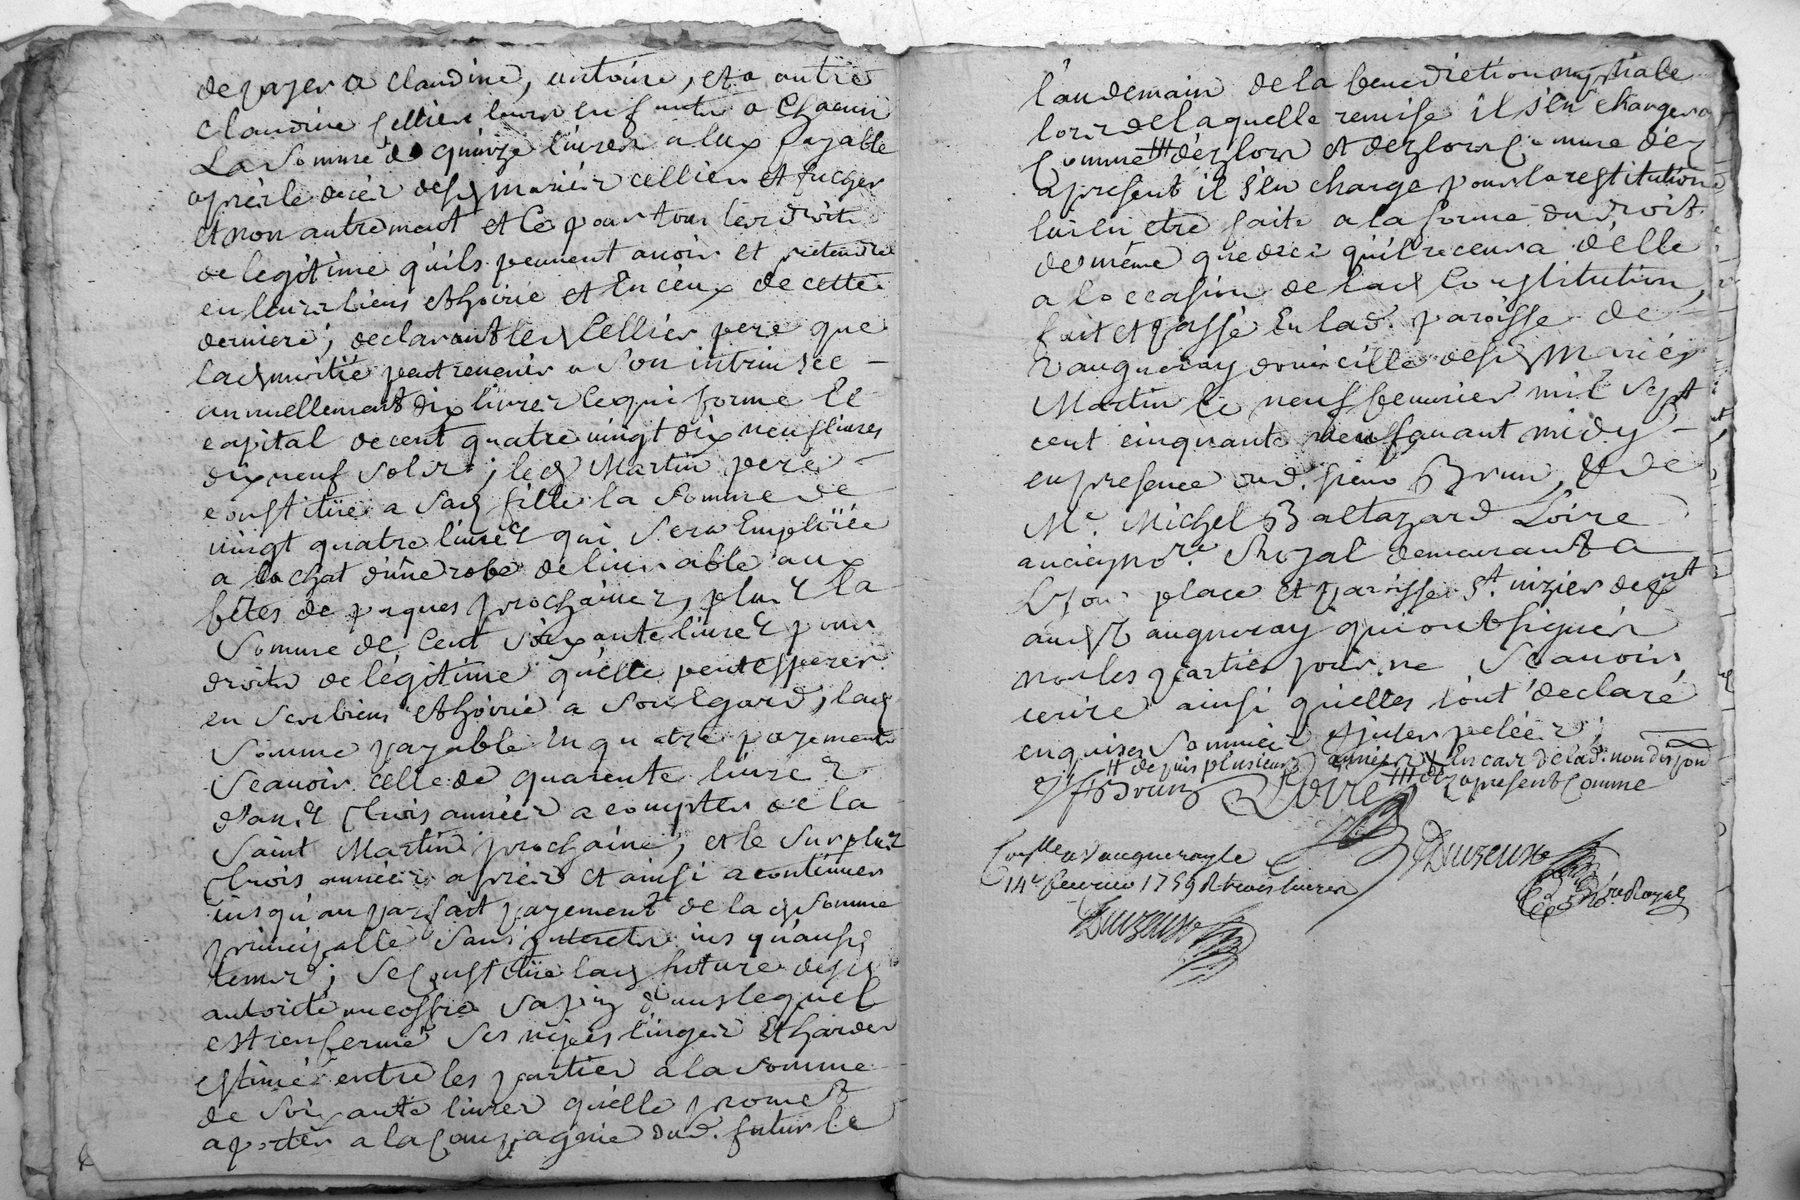 de payer a claudine, antoine, et a autre
claudine Cellier leurs enfants a Chacun
La Somme de quinze livres a eux payable
après le decès desd mariés cellier et
et non autrement et Ce pour tous les droits
de legitime quils peuvent avoir et pretendre
en leurs biens et hoirie et En ceux de cette
derniere; declarant led Cellier pere que
lad moitié peut revenir a Son intrinsec
annuellement dix livres ce qui forme le
capital de cent quatre vingt dix neuf livres
dix neuf Sols; led Martin pere
constitue a Sad fille la Somme de
vingt quatre livres qui Sera Emploïée
a lachat d'une robe de aux
fêtes de paques prochaines, plus la
Somme de Cent Soixante livres pour
droits de legitime quelle peut esperer
en Ses biens et hoirie a Son Egard, lad
Somme payable En quatre payements
Scavoir celle de quarente livres
dans trois années a compter de la
Saint Martin prochaine, et le Surplus
trois années après et ainsi a continuer
jusqu'au parfait payement de lad Somme
principalle Sans interets jusqu'ausd
temps; Se constitue lad future desd
autorité un coffre Sapin dans lequel
est renfermé Ses nipes linges et hardes
estimé entre les parties a la Somme
de Soixante livres quelle promet
aporter a la Compagnie dud. futur le
landemain de la benediction nuptiale
lors de laquelle remise il s'en chargera
Comme ⵌ dèz lors et dez lors Comme dèz
apresent il s'en charge pour la restitution
lui en etre faite a la forme du droit
de même que de ce qu'il recevra d'elle
a loccasion de lad Constitution,
fait et passé En lad. paroisse de
Vaugneray domicille desd Mariés
Martin le neuf fevrier mil Sept
cent cinquante neuf avant midy
en presence dud. Sieur Brun, Et de
Me. Michel Baltazard Loire
ancien nore. Royal demeurant a
Lyon place et paroisse St. nizier de pnt
aud Vaugneray qui ont signés
non les parties pour ne Scavoir
ecrire ainsi quelles l'ont declaré
enquises Sommées et interpelées;
ⵌ depuis plusieurs années En cas de lad. non
ⵌ dez apresent Comme
Brun Loire
Duzeux
nore Royal
Conllé a Vaugneray le
14e fevrier 1759 R trois livres
Duzeux